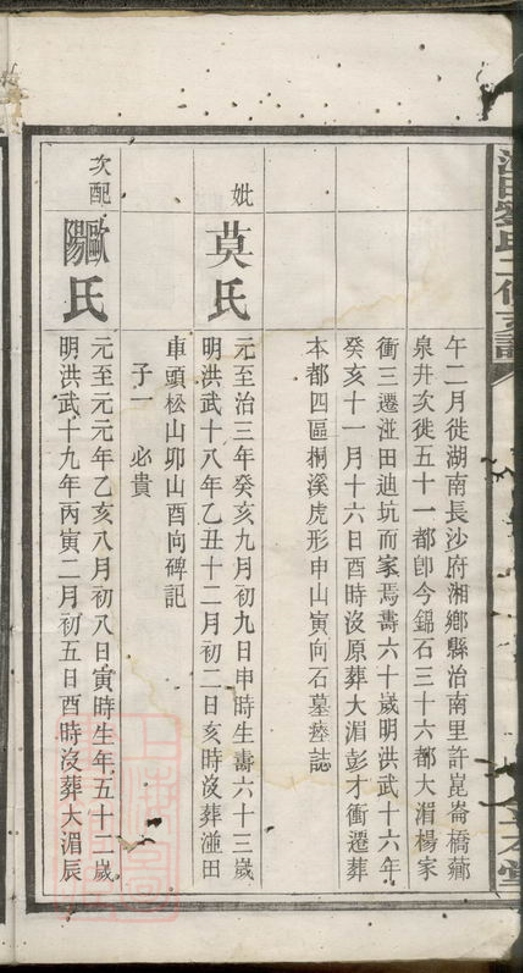 劉氏二修支譜
午二月徙湖南長沙府湘鄉縣治南里許崑崙橋薌
泉井次徙五十一都卽今錦石三十六都大湄楊家
衝三遷湴田迪坑而家焉壽六十歲明洪武十六年
癸亥十一月十六日酉時沒原葬大湄彭才衝遷葬
本都四區桐溪虎形申山寅向石墓瘞誌
妣 莫氏
元至治三年癸亥九月初九日申時生壽六十三歲
明洪武十八年乙丑十二月初二日亥時沒葬湴田
車頭松山卯山酉向碑記
子一 必貴
次配 歐陽氏
元至元元年乙亥八月初八日寅時生年五十二歲
明洪武十九年丙寅二月初五日酉時沒葬大湄辰